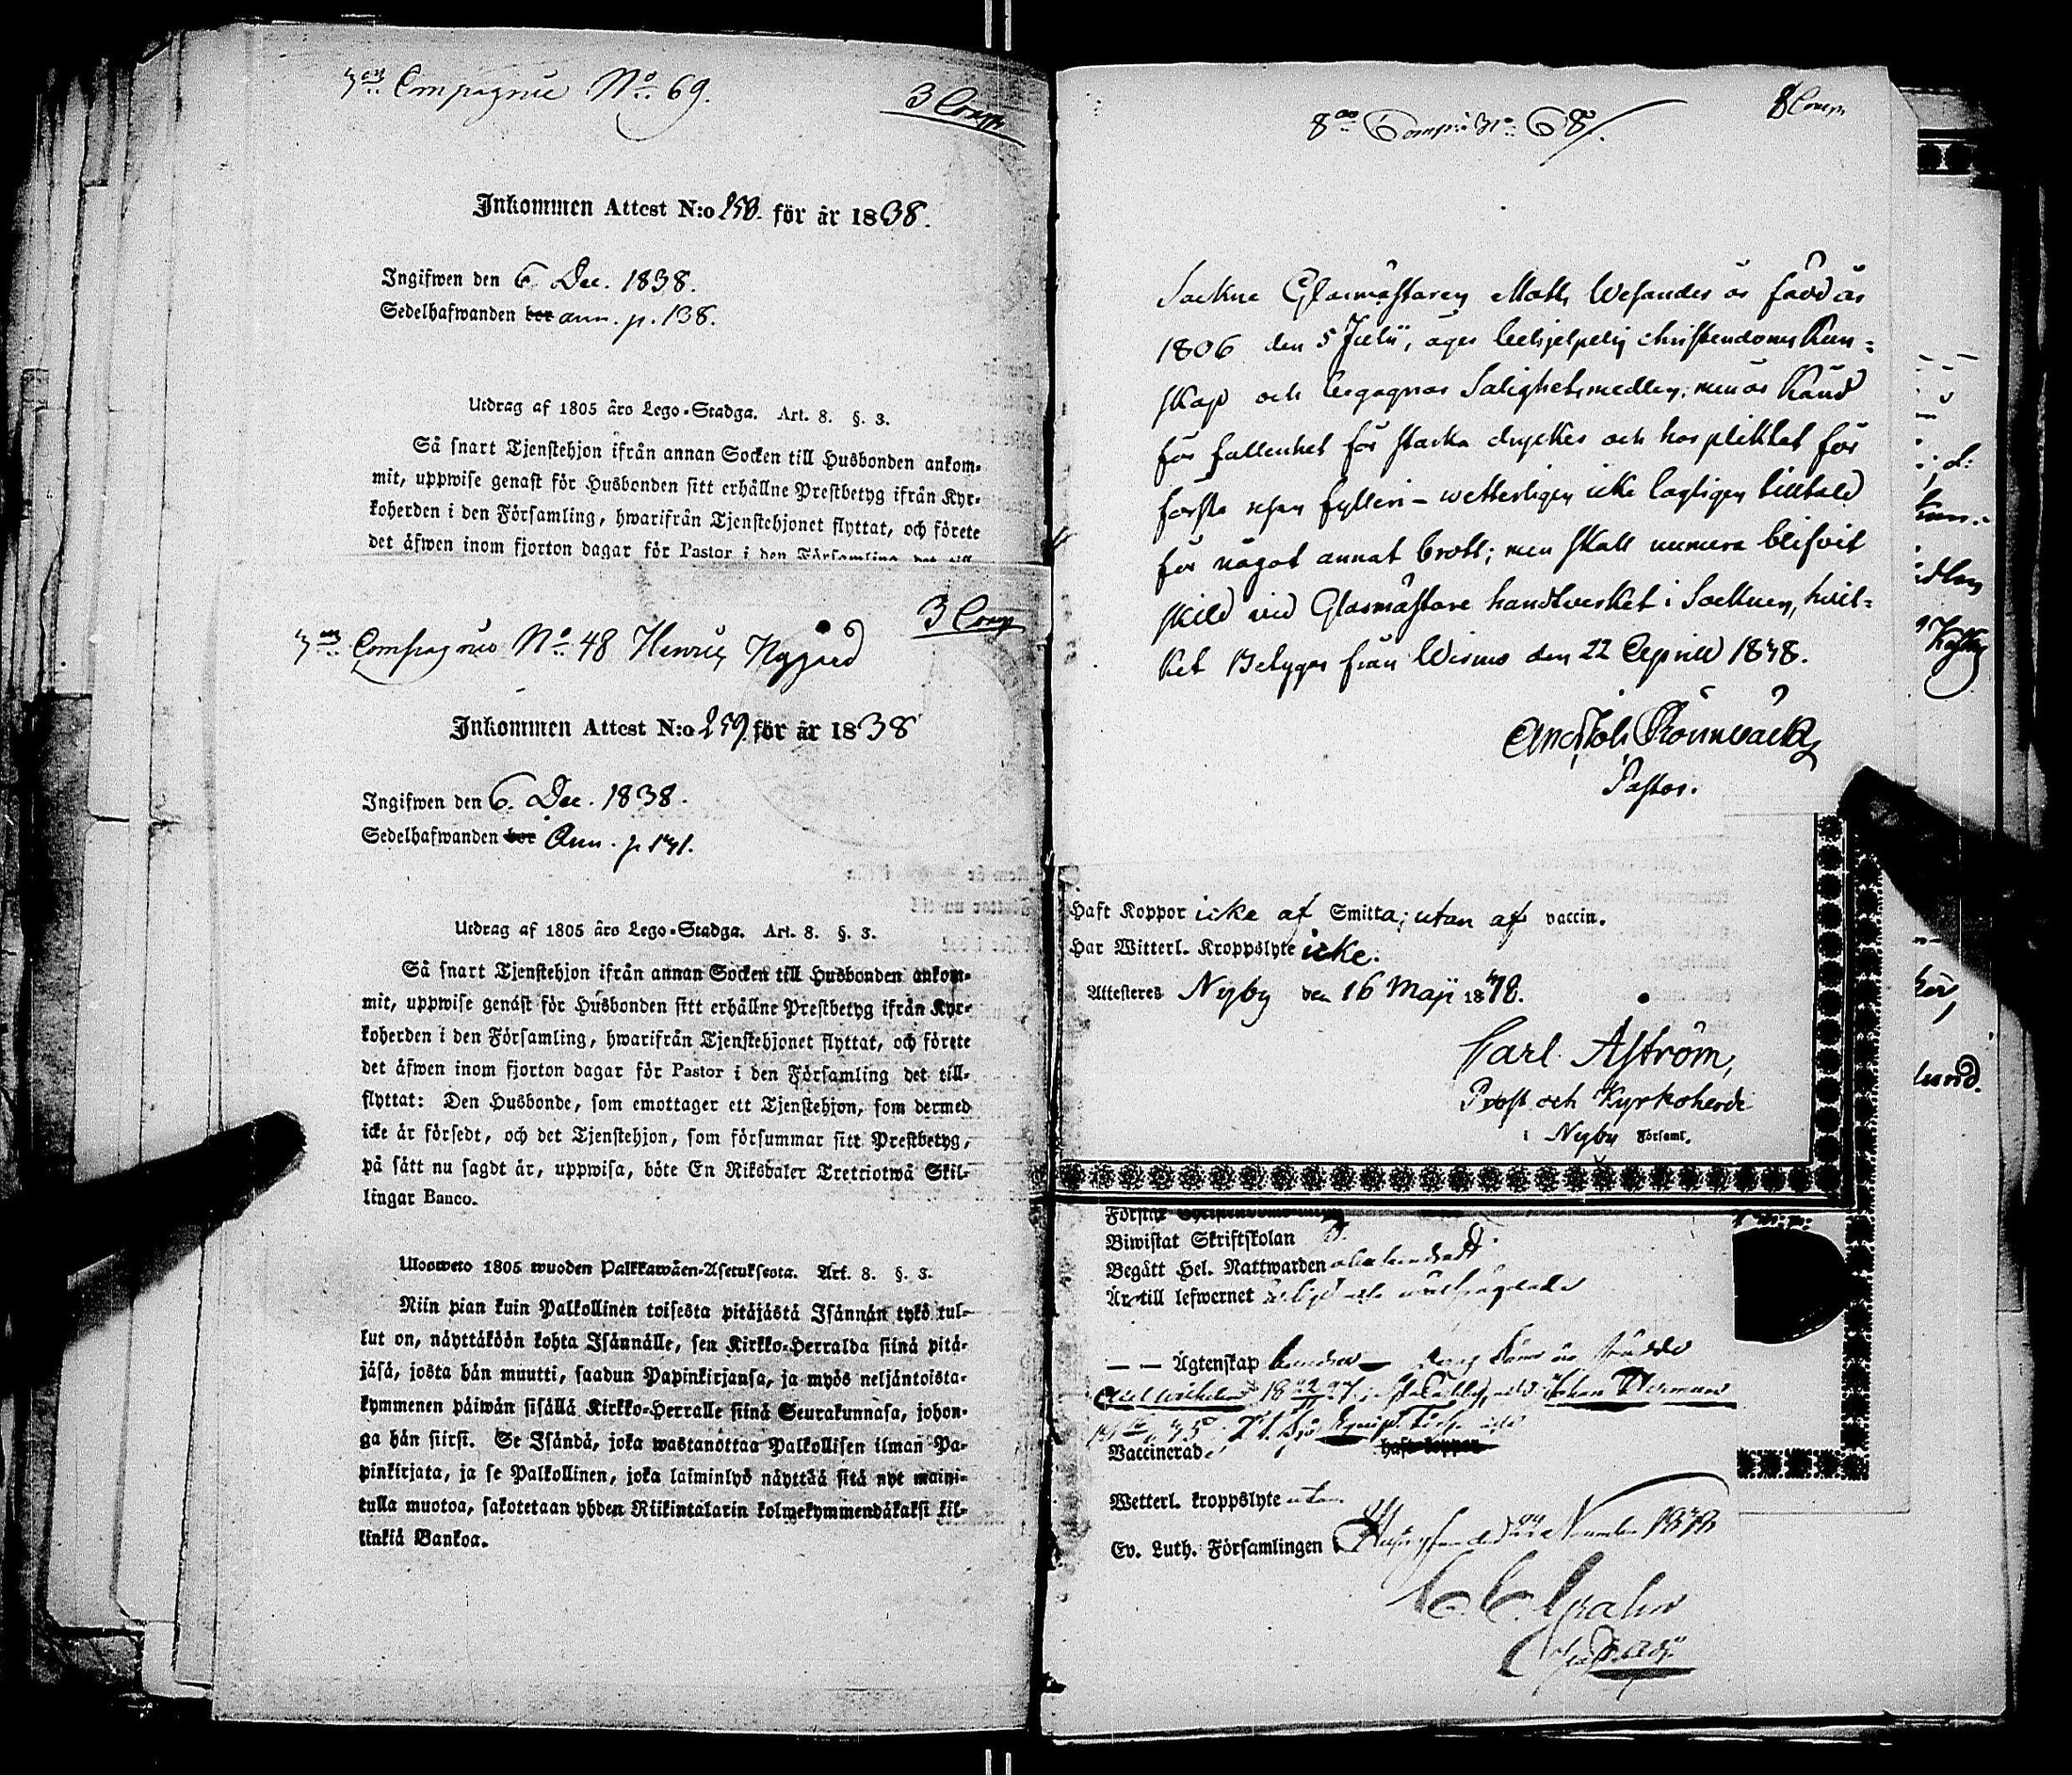 Compagnie No. 69.
3 Comp
Inkommen Attest N:o 258. för år 1838.
Ingifwen den 6 Dec. 1838.
Sedelhafwanden bor ann. p. 138.
Utdrag af 1805 åro Lego-Stadga. Art. 8. §. 3.
Så snart Tjenstehjon ifrån annan Socken till Husbonden ankom-
mit, uppwise genast för Husbonden sitt erhållne Prestbetyg ifrån Kyr-
koherden i den Församling, hwarifrån Tjenstehjonet flyttat, och förete
det äfwen inom fjorton dagar för Pastor i den Församling det till
3 Comp
Compagnie No. 48 Henric Nygård
Inkommen Attest N:o 259. för år 1838
Ingifwen den 6. Dec. 1838.
Sedelhafwanden bor Ann. p 141.
Utdrag af 1805 åro Lego-Stadga. Art. 8. §. 3.
Så snart Tjenstehjon ifrån annan Socken till Husbonden ankom-
mit, uppwise genast för Husbonden sitt erhållne Prestbetyg ifrån Kyr-
koherden i den Församling, hwarifrån Tjenstehjonet flyttat, och förete
det äfwen inom fjorton dagar för Pastor i den Församling det till-
flyttat: Den Husbonde, som emottager ett Tjenstehjon, som dermed
icke är försedt, och det Tjenstehjon, som försummar sitt Prestbetyg,
på sätt nu sagdt är, uppwisa, böte En Riksdaler Tretriotwå Skil-
lingar Banco.
Ulosweto 1805 wuoden Palkkawäen-Asetuksesta. Art. 8. §. 3.
Niin pian kuin Palkollinen toisesta pitäjästä Isännän tykö tul-
lut on, näyttäköön kohta Isännälle, sen Kirkko-Herralda siinä pitä-
jäsä, josta hän muutti, saadun Papinkirjansa, ja myös neljäntoista-
kymmenen päiwän sisällä Kirkko-Herralle siinä Seurakunnasa, johon-
ga hän siirsi. Se Isändä, joka wastanottaa Palkollisen ilman Pa-
pinkirjata, ja se Palkollinen, joka laiminlyö näyttää sitä nyt maini-
tulla muotoa, sakotetaan yhden Riikintalarin kolmekymmendäkaksi kil-
linkiä Bankoa.
8 Comp
8de Comp:i No 68.
Socknе Glasmästaren Math Wesander är född år
1806 den 5 Julii, äger behjelpelig christendoms Kun-
skap och begagnar Salighetsmedlen; men är känd
för fallenhet för starka drycker och har pliktat för
första resan fylleri – wetterligen icke lagligen tilltald
för något annat brott; men skall numera blifvit
skild vid Glasmästare handtverket i Socknen, hvil-
ket Betygar från Wirmo den 22 Aprill 1838.
Pastor.
Haft Koppor icke af Smitta; utan af vaccin.
Har Witterl. Kroppslyte icke.
Attesteres Nyby den 16 Maji 1838.
Carl Aström,
Prost och Kyrkoherde
i Nyby Församl.
Förstår
Biwistat Skriftskolan
Begått Hel. Nattwarden
Är till lefwernet
— — Ägtenskap
Vaccinerad haft koppor
Wetterl. kroppslyte utan.
Ev. Luth. Församlingen
C. C. Grahn